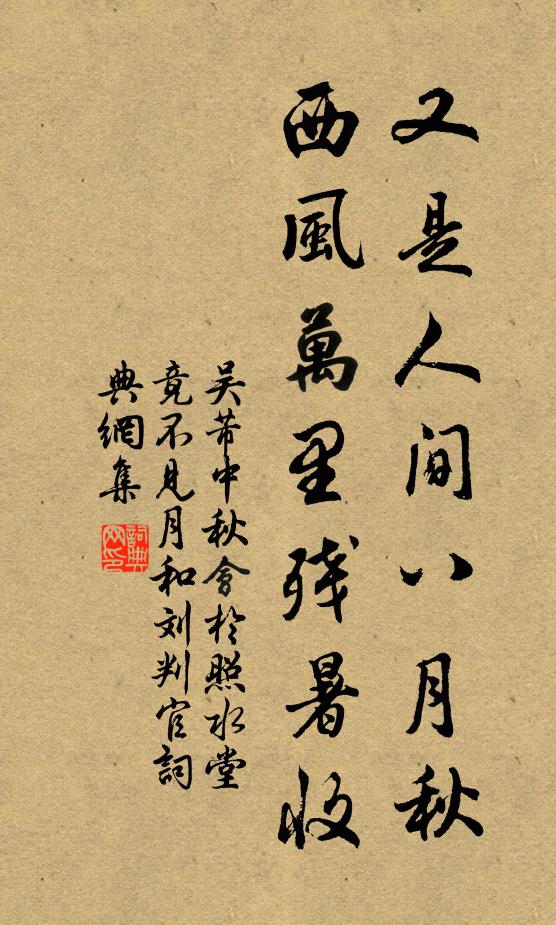 又是人間八月秋
西風萬里残暑收
吴芾中秋會於照水堂
竟不見月和刘判官詞
典網集
詞典网印